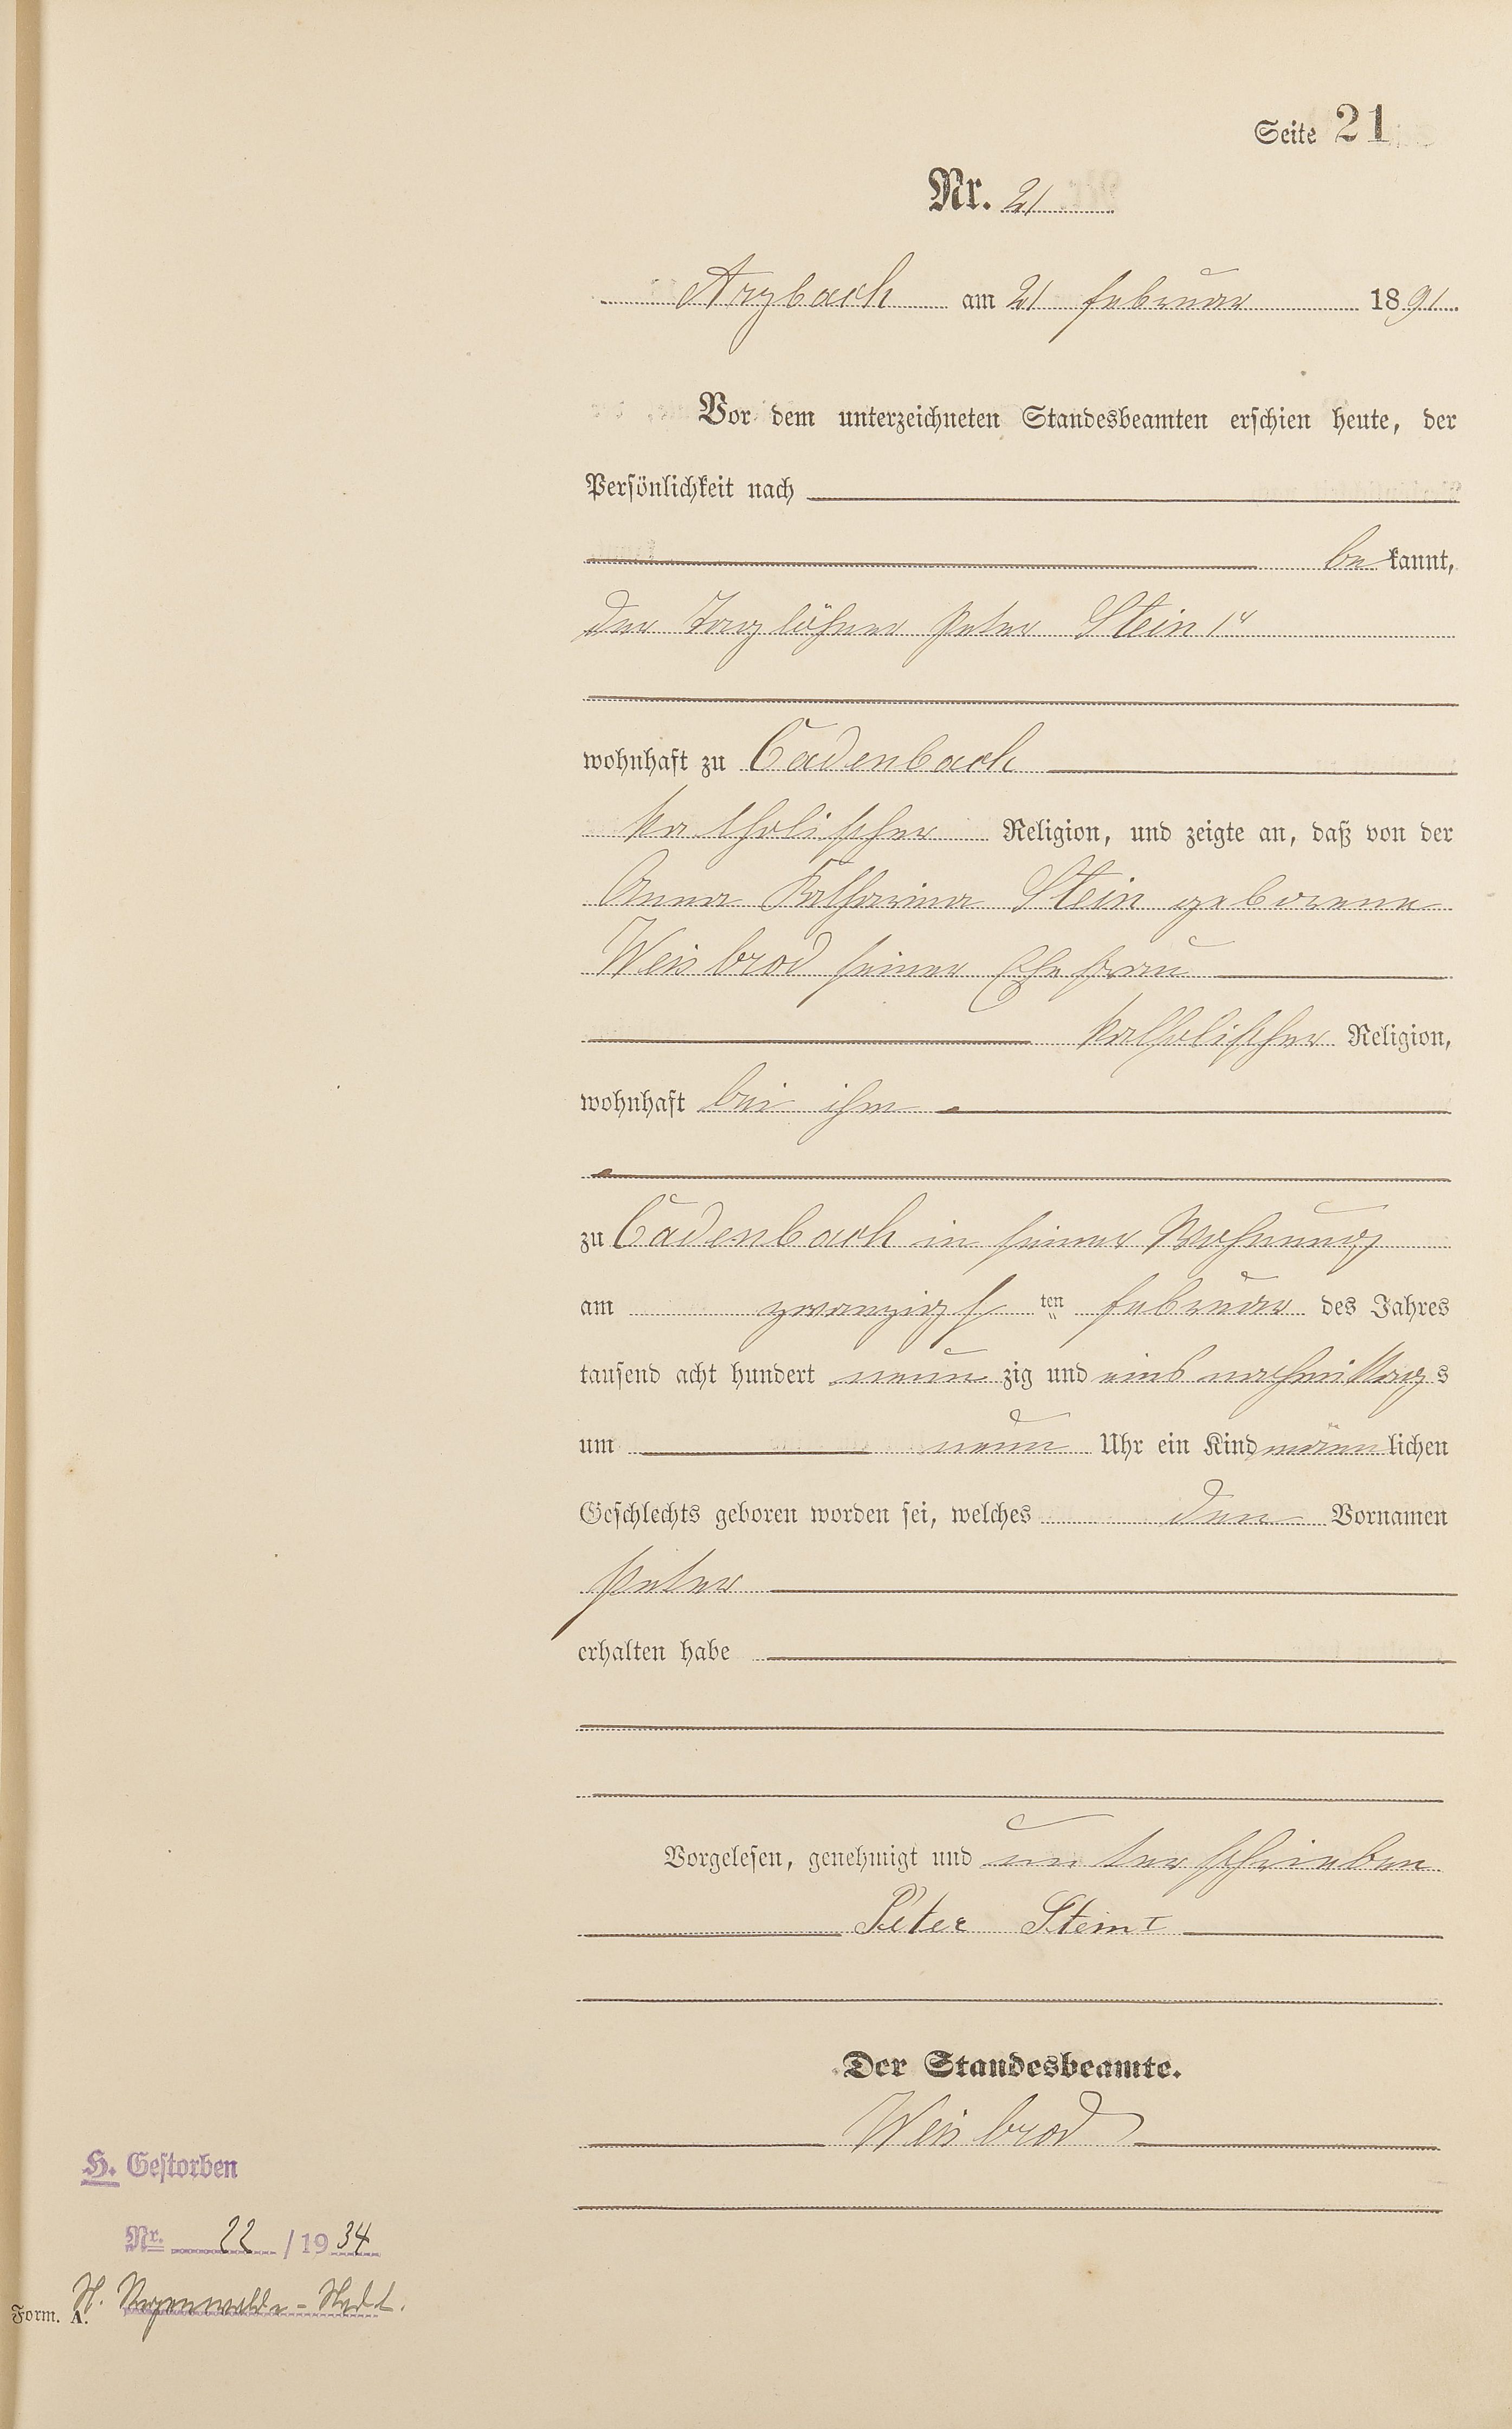 Seite 21
Nr. 21
Arzbach am 21 Februar 1891.
Vor dem unterzeichneten Standesbeamten erschien heute, der
Persönlichkeit nach
bekannt,
der Taglöhner Peter Stein 1r
wohnhaft zu Cadenbach
katholischer Religion, und zeigte an, daß von der
Anna Katharina Stein geborene
Weisbrod seiner Ehefrau
katholischer Religion,
wohnhaft bei ihm
zu Cadenbach in seiner Wohnung
am zwanzigsten Februar des Jahres
tausend acht hundert neunzig und eins nachmittags
um neun Uhr ein Kind männlichen
Geschlechts geboren worden sei, welches den Vornamen
Peter
erhalten habe
Vorgelesen, genehmigt und unterschrieben
Peter Stein I
Der Standesbeamte.
Weisbrod
H. Gestorben
Nr. 22 / 1934
Form. A.